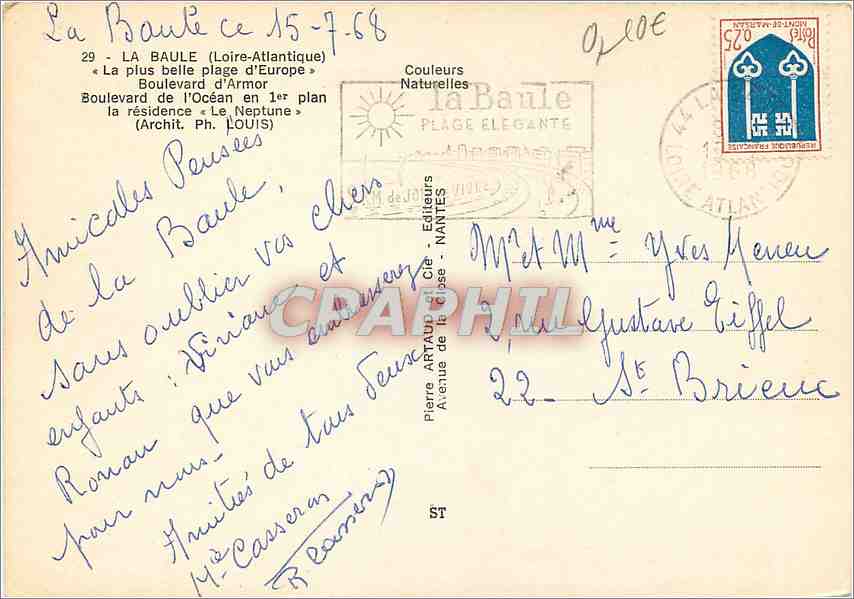 La Baule ce 15-7-68
0,10€
29 - LA BAULE (Loire-Atlantique)
« La plus belle plage d'Europe »
Boulevard d'Armor
Boulevard de l'Océan en 1er plan
la résidence « Le Neptune »
(Archit. Ph. LOUIS)
Couleurs
Naturelles
la Baule
PLAGE ELEGANTE
44 LA
LOIRE ATLANTIQUE
1968
POSTES
0,25
MONT-DE-MARSAN
REPUBLIQUE FRANCAISE
Amicales Pensées
de la Baule,
sans oublier vos chers
enfants : Viviane et
Ronan que vous embrasserez
pour nous-
Amitiés de tous deux
Me Casseron
R Casseron
Pierre ARTAUD et Cie - Editeurs
Avenue de la Close - NANTES
CPAPHIL
Mr et Mme Yves
2, rue Gustave Eiffel
22- St Brieuc
ST